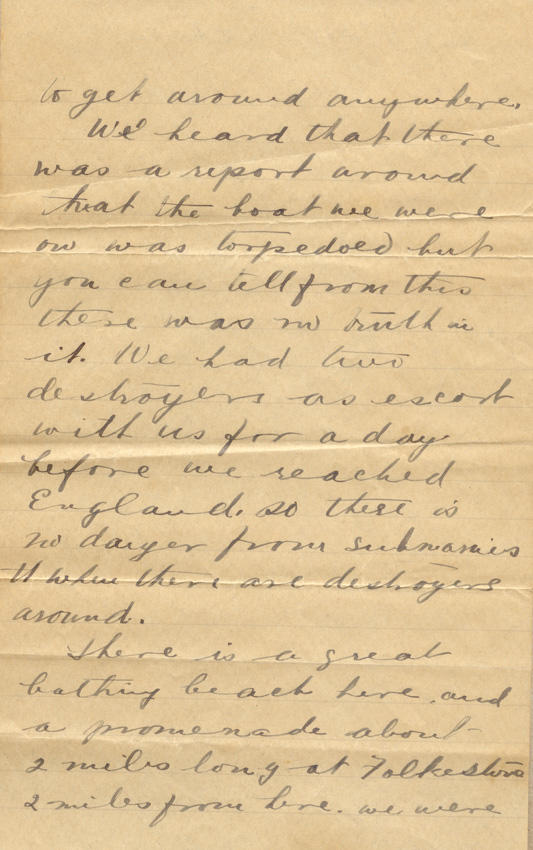 to get around anywhere.
We heard that there
was a report around
that the boat we were
on was torpedoed but
you can tell from this
there was no truth in
it. We had two
destroyers as escort
with us for a day
before we reached
England. so there is
no danger from submarines
when there are destroyers
around.
There is a great
bathing beach here. and
a promenade about
2 miles long at Folkestone
2 miles from here. we were